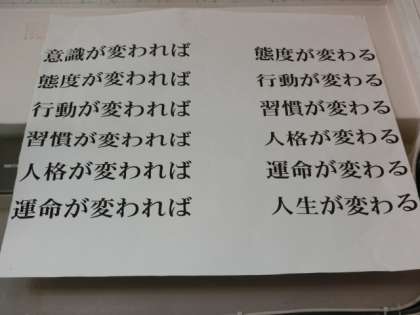 意識が変われば 態度が変わる
態度が変われば 行動が変わる
行動が変われば 習慣が変わる
習慣が変われば 人格が変わる
人格が変われば 運命が変わる
運命が変われば 人生が変わる